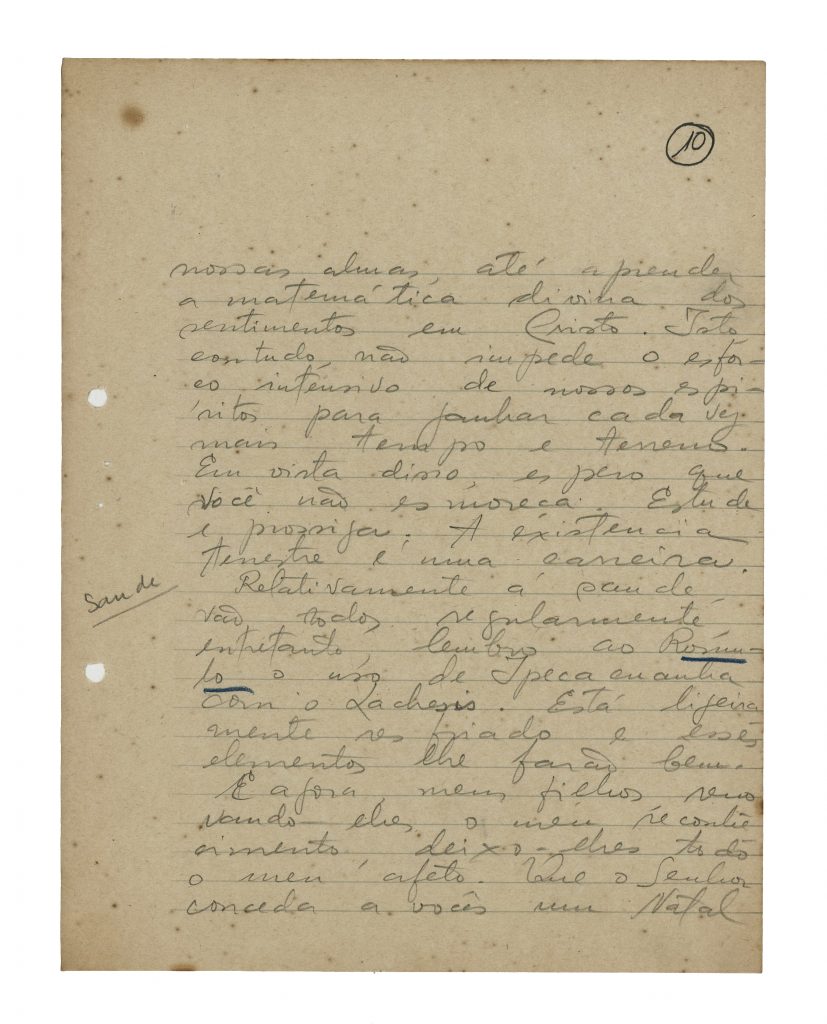 10
nossas almas, até aprender
a matemática divina dos
sentimentos em Cristo. Isto
contudo, não impede o esfor-
ço intensivo de nossos espi-
ritos para ganhar cada vez
mais tempo e terreno.
Em vista disso, espero que
você não esmoreça. Estude
e prossiga. A existencia
terrestre é uma carreira.
Relativamente á saude,
Saude
vão todos regularmente,
entretanto, lembro ao Rômu-
lo o uso de Ipecacuanha
com o Lachesis. Está ligeira
mente resfriado e esses
elementos lhe farão bem.
E agora, meus filhos reno
vando-lhes o meu reconhe
cimento deixo-lhes todo
o meu afeto. Que o Senhor
conceda a vocês um Natal